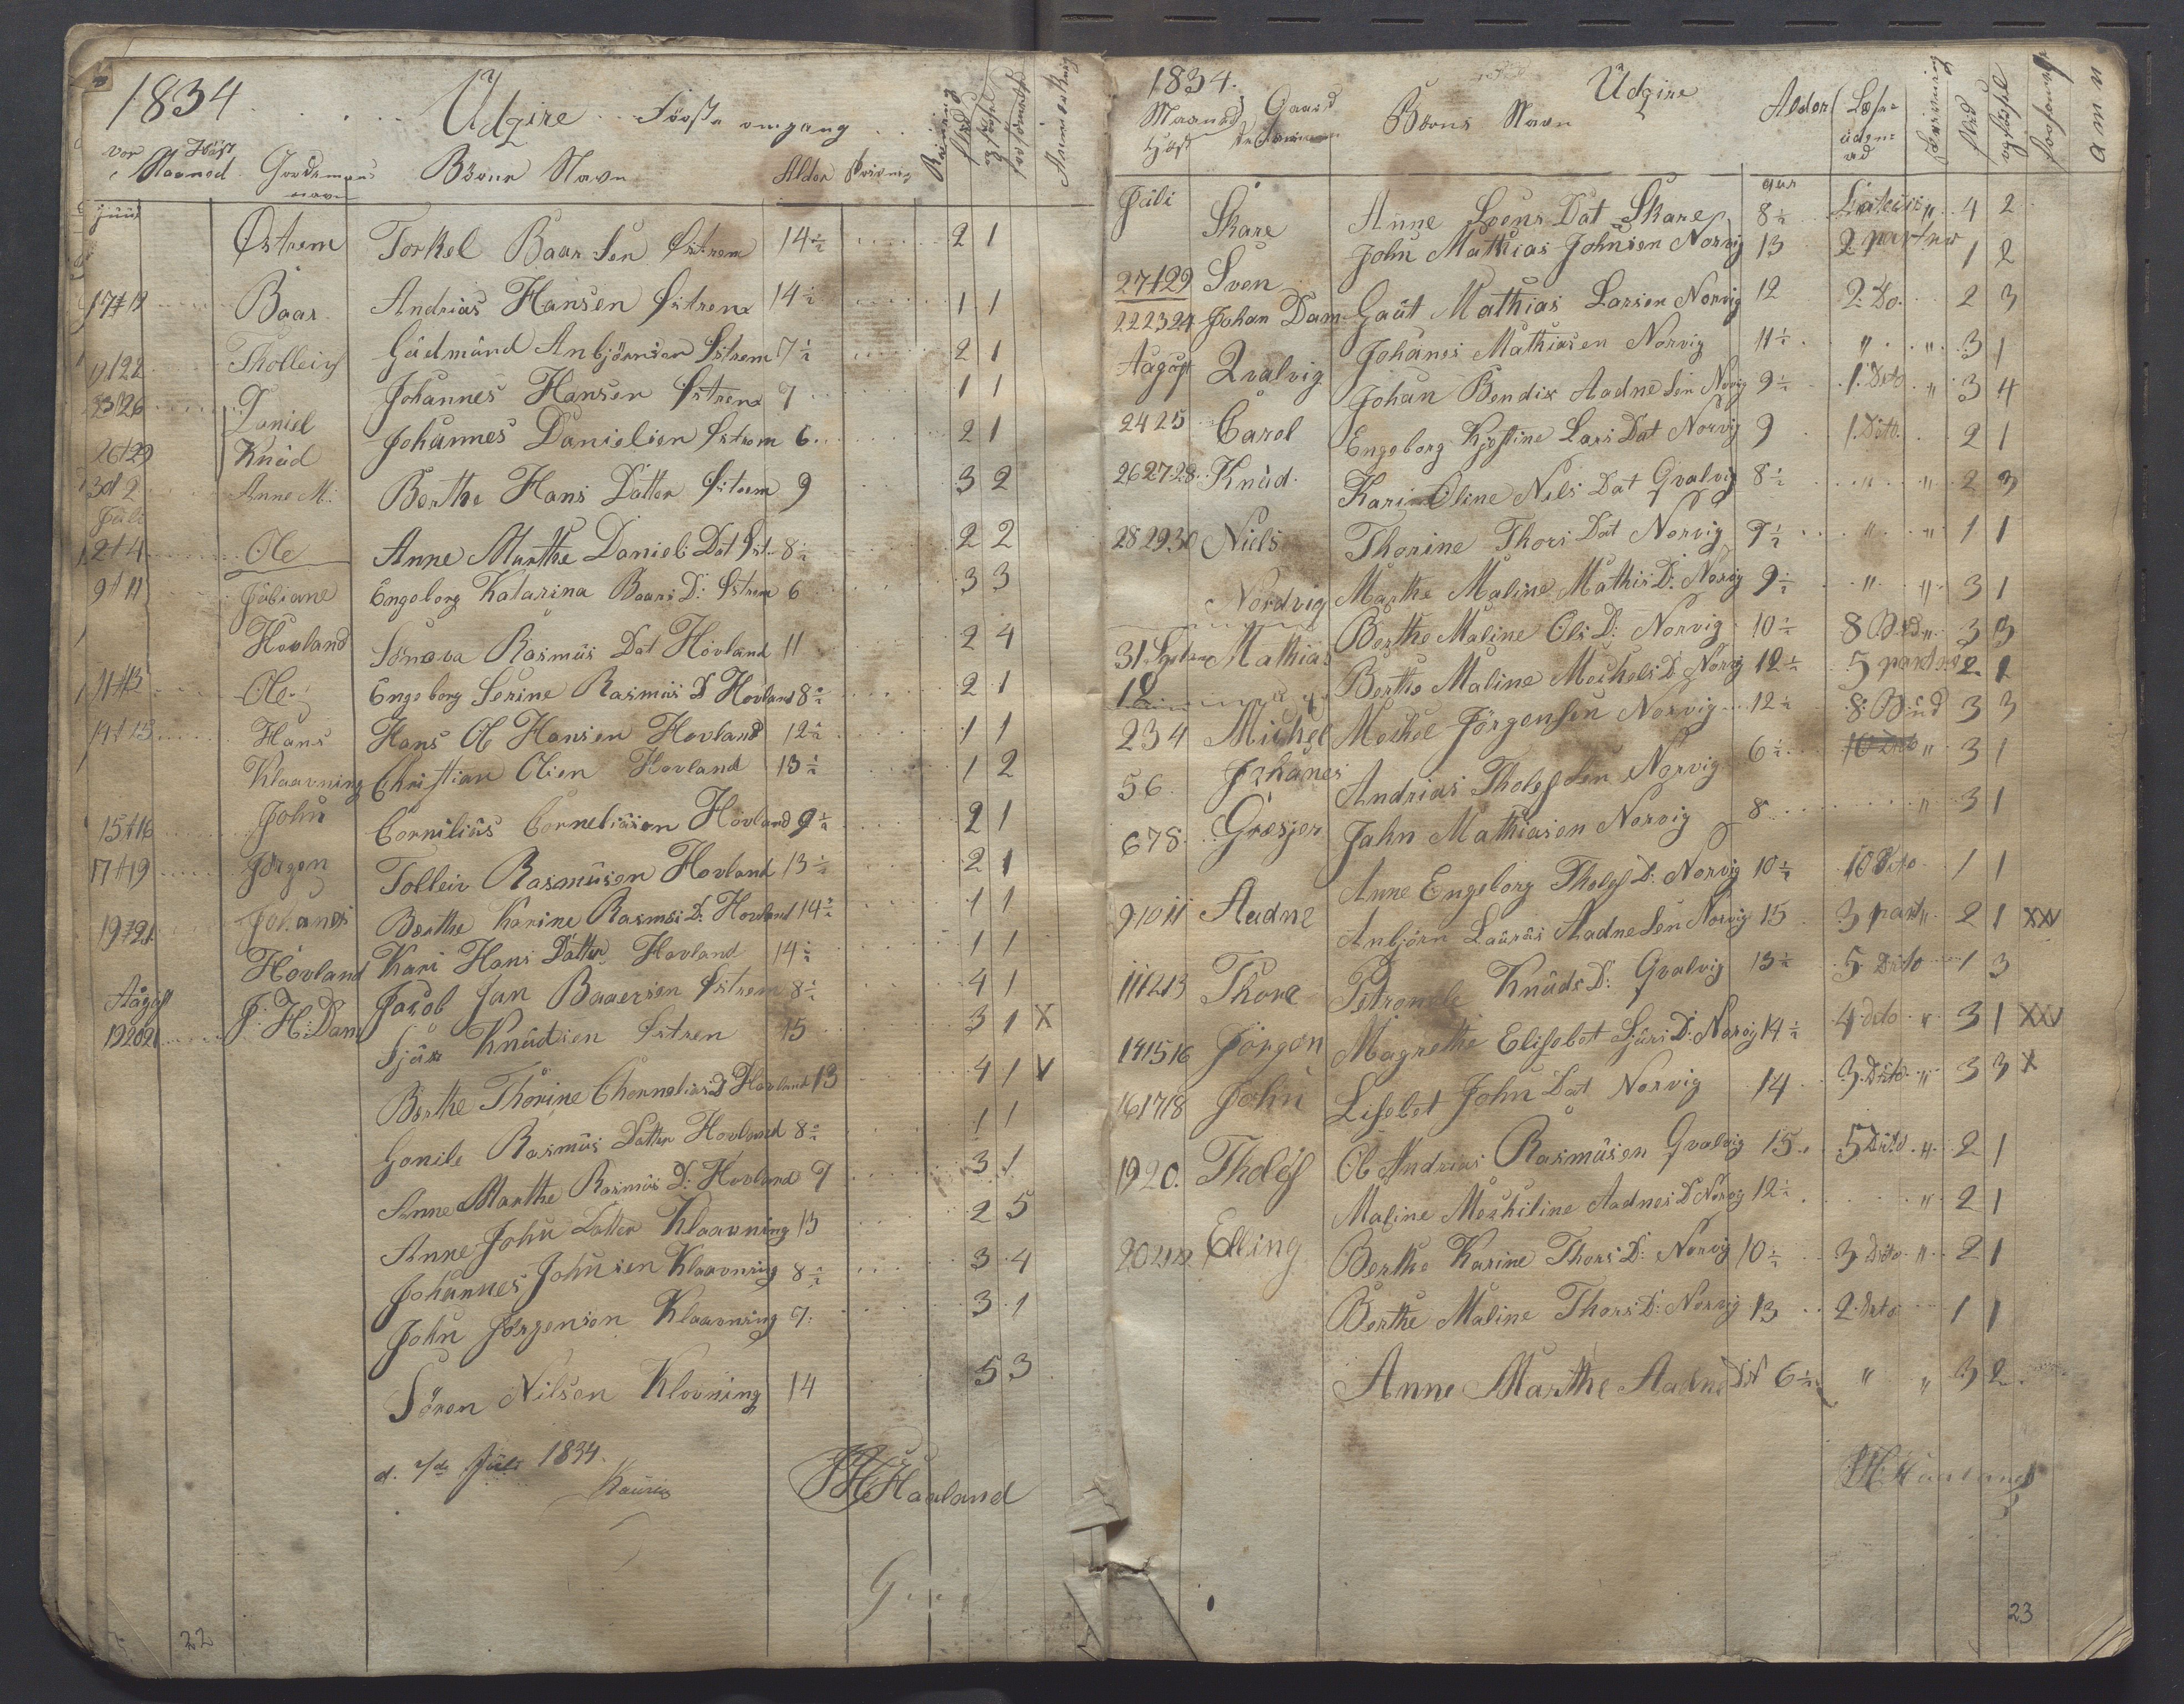 1834
Udgire Første omgang
Vor Høst
Maaned Gordsmans navn Börnr Navn Alder Skrivning
Juni Østrem Torkel Baarsen Østrem 14½ 2 1
17+19 Baar Andrias Hansen Østrem 14½ 1 1
19/22 Tholleiv Gudmund Anbjörnsen Østrem 7½ 2 1
Daniel Johannes Hansen Østrem 7 1 1
26+29 Knud Johannes Danielsen Østrem 6 2 1
Anne M: Berthe Hans Datter Østrem 9 3 2
Juli
2+4 Ole Anne Marthe Daniels Dat Øst 8½ 2 2
9+11 Juliane Engeborg Katarina Baars D: Østrem 6 3 3
Hovland Sönava Rasmus Dat Hovland 11 2 4
11+13 Ole Engeborg Serine Rasmus D Hovland 8½ 2 1
14+15 Hans Hans Ol Hansen Hovland 12½ 1 1
Klaavning Christian Olsen Hovland 13½ 1 2
15+16 John Cornilius Corneliusen Hovland 9½ 2 1
17+19 Jörgen Tolleiv Rasmusen Hovland 13½ 2 1
19+21 Johanes Berthe Karine Rasmus D: Hovland 14½ 1 1
Hovland Kari Hans Datter Hovland 14½ 1 1
August J: H: Dam Jacob Jan Baaersen Østrem 8½ 4 1
192021 Sjur Knudsen Østren 15 3 1 X
Berthe Thorine Chornelius D Hovland 13 4 1 V
Gonile Rasmus Datter Hovland 8½ 1 1
Anne Marthe Rasmus D: Hovland 7 3 1
Anne John Datter Klaavning 13 2 5
Johannes Johnsen Klaavning 8½ 3 4
John Jørgensen Klaavning 7 3 1
Søren Nilsen Klovning 14 5 3
d. Juli 1834.
Haaland
22
1834.
Udgire
Maaned Gaard Börns Navn Alder Læsr udenad
Høst
Juli Skare Anne Svens Dat Skare 8½ 4 2
27+29 Sven John Mathias Johnsen Norvig 13 2 parter 1 2
222324 Johan Dam Gaut Mathias Larsen Norvig 12 2 Do. 2 3
August Qvalvig Johanes Mathiasen Norvig 11½ " " 3 1
Johan Bendix Aadnesen Norvig 9½ 1 Dito " 3 4
2425 Carol Engeborg Kjestine Lars Dat Norvig 9 1 Dito 2 1
262728 Knud Kari Oline Nils Dat Qvalvig 8½ " " 2 3
282930 Niels Thorine Thors Dat Norvig 9½ " " 1 1
Nordvig Marthe Maline Mathis D: Norvig 9½ " " 3 1
31 Mathias Berthe Maline Ols D: Norvig 10½ 8 Bud " 3 3
12 Berthe Maline Mechels D Norvig 12½ 5 parter 2 1
234 Michel Mechel Jörgensen Norvig 12½ 8 Bud 3 3
56 Johanes Andrias Tholefsen Norvig 6½ 10 Dito " 3 1
678 Gresjer Jahn Mathiasen Norvig 8 " 3 1
Anne Engeborg Tholef D: Norvig 10½ 10 Dito 1 1
91011 Aadne Anbjörn Laurus Aadnesen Norvig 15 3 part " 2 1 XXV
111213 Thore Petronele Knuds D: Qvalvig 13½ 5 Dito 1 3
141516 Jörgen Magrethe Elisebet Sjurs D: Norvig 14½ 4 dito " 3 1 XXV
161718 John Lisebet John Dat Norvig 14 3 Dito " 3 3 X
1920. Tholef Ol Andrias Rasmusen Qvalvig 15 5 Dito " 2 1
Maline Mechiline Aadnes D Norvig 12½ " 2 1
Elling Berthe Karine Thors D: Norvig 10½ 3 Dito " 2 1
Berthe Maline Thors D: Norvig 13 2 Dito 1 1
Anne Marthe Aadne Dat 6½ " " 3 2
23